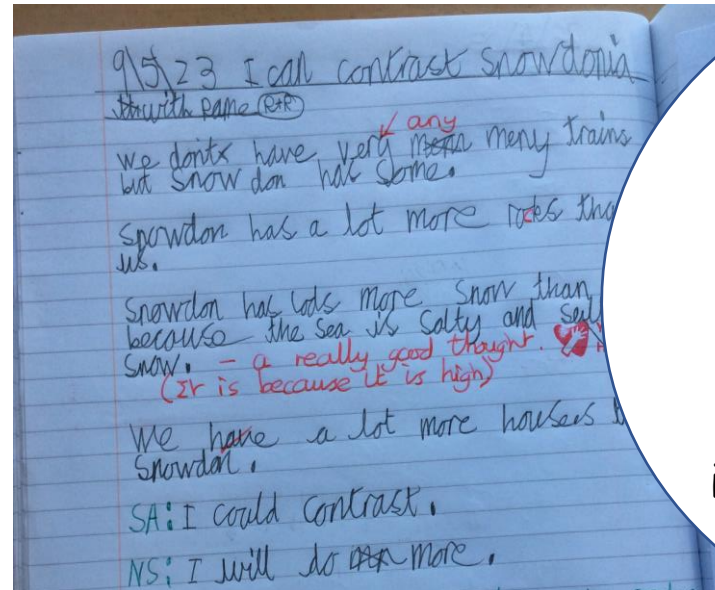 9\5\23 I can contrast snowdonia
with Pame R+R
any
we dont have very meny trains
but snow don hat some.
Spowdon has a lot more rodes tha
us.
Snowdon has lods more snow than
because the sea is salty and
snow. - a really good thought.
(It is because it is high)
We have a lot more housers
Snowdon.
SA: I could contrast.
NS: I will do more.